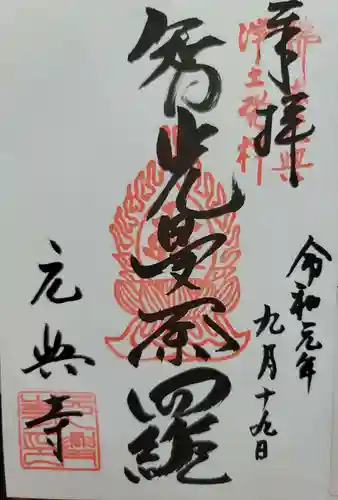 奉拝
智光曼荼羅
令和元年
九月十九日
元興寺